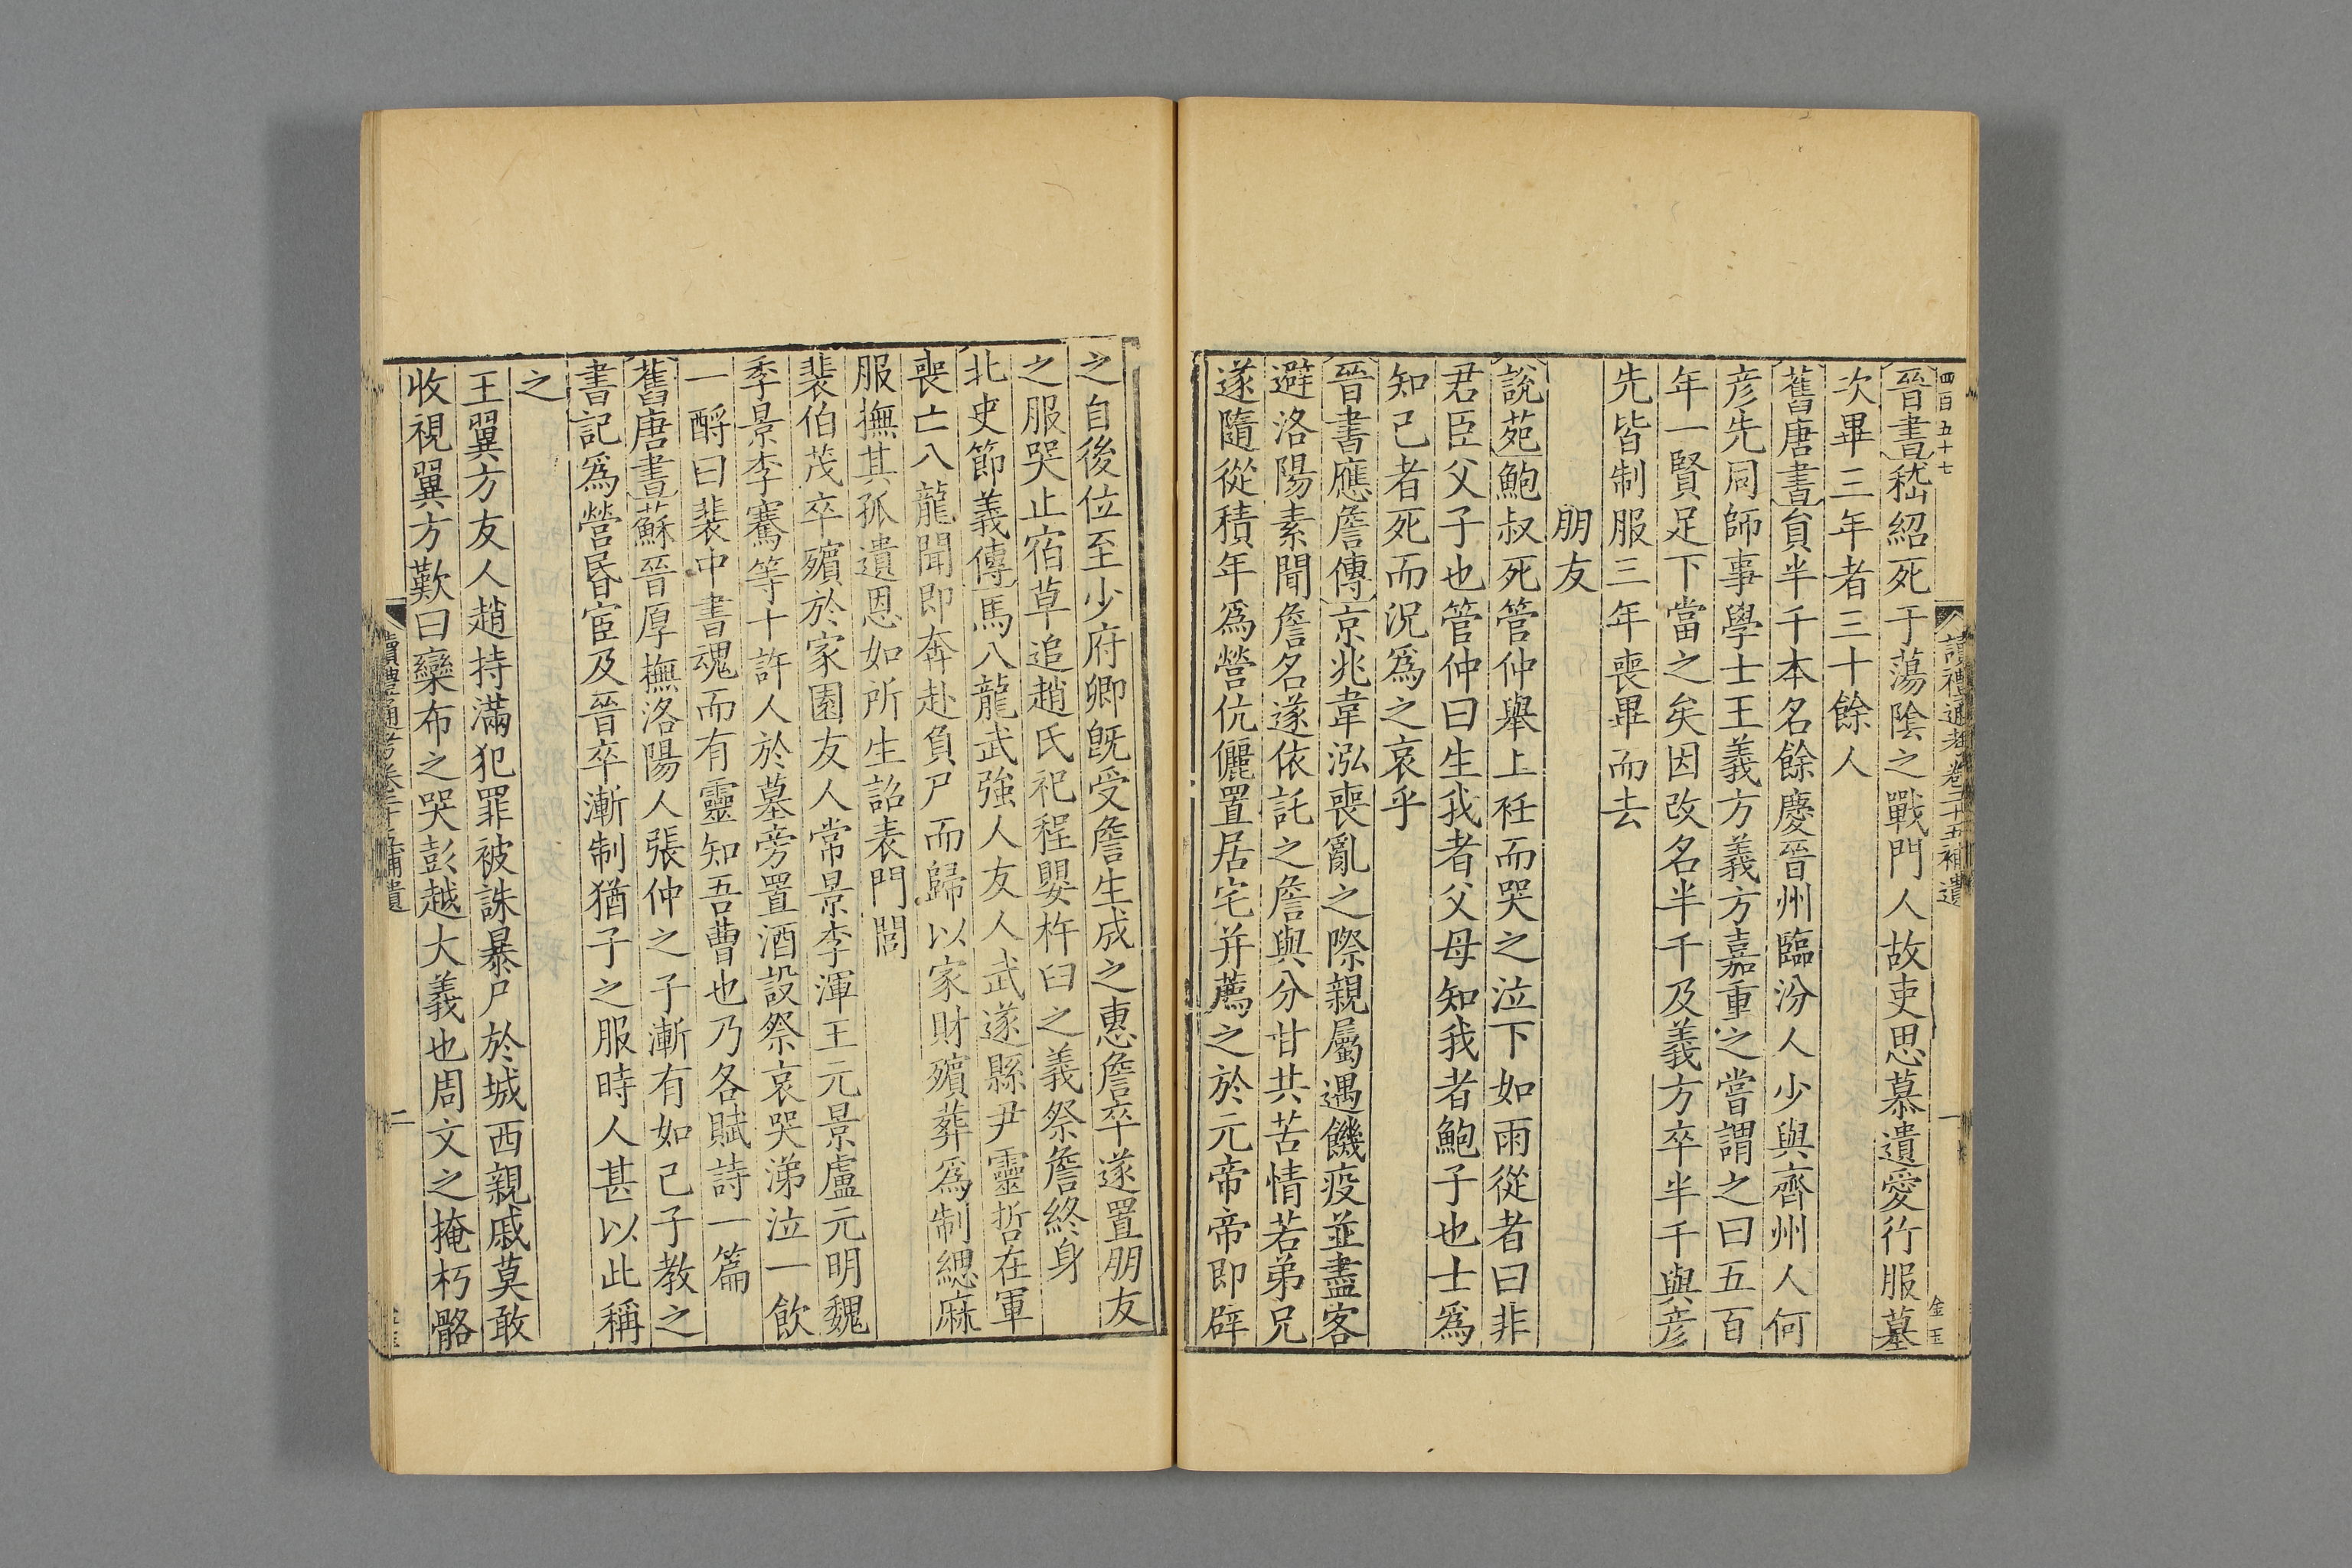 四百五十七
讀禮通考卷二十五補遺
一
金玉
晉書嵇紹死于蕩陰之戰門人故吏思慕遺愛行服墓
次畢三年者三十餘人
舊唐書員半千本名餘慶晉州臨汾人少與齊州人何
彦先同師事學士王義方義方嘉重之嘗謂之曰五百
年一賢足下當之矣因改名半千及義方卒半千與彦
先皆制服三年喪畢而去
朋友
說苑鮑叔死管仲舉上衽而哭之泣下如雨從者曰非
君臣父子也管仲曰生我者父母知我者鮑子也士爲
知己者死而況爲之哀乎
晉書應詹傳京兆韋泓喪亂之際親屬遇饑疫並盡客
避洛陽素聞詹名遂依託之詹與分甘共苦情若弟兄
遂隨從積年爲營伉儷置居宅并薦之於元帝帝即辟
之自後位至少府卿旣受詹生成之惠詹卒遂置朋友
之服哭止宿草追趙氏祀程嬰杵臼之義祭詹終身
北史節義傳馬八龍武強人友人武遂縣尹靈哲在軍
喪亡八龍聞即奔赴負尸而歸以家財殯葬爲制緦麻
服撫其孤遺恩如所生詔表門閭
裴伯茂卒殯於家園友人常景李渾王元景盧元明魏
季景李騫等十許人於墓旁置酒設祭哀哭涕泣一飲
一酹曰裴中書魂而有靈知吾曹也乃各賦詩一篇
舊唐書蘇晉厚撫洛陽人張仲之子漸有如己子教之
書記爲營昏宦及晉卒漸制猶子之服時人甚以此稱
之
王翼方友人趙持滿犯罪被誅暴尸於城西親戚莫敢
收視翼方歎曰欒布之哭彭越大義也周文之掩朽骼
讀禮通考卷二十五補遺
二